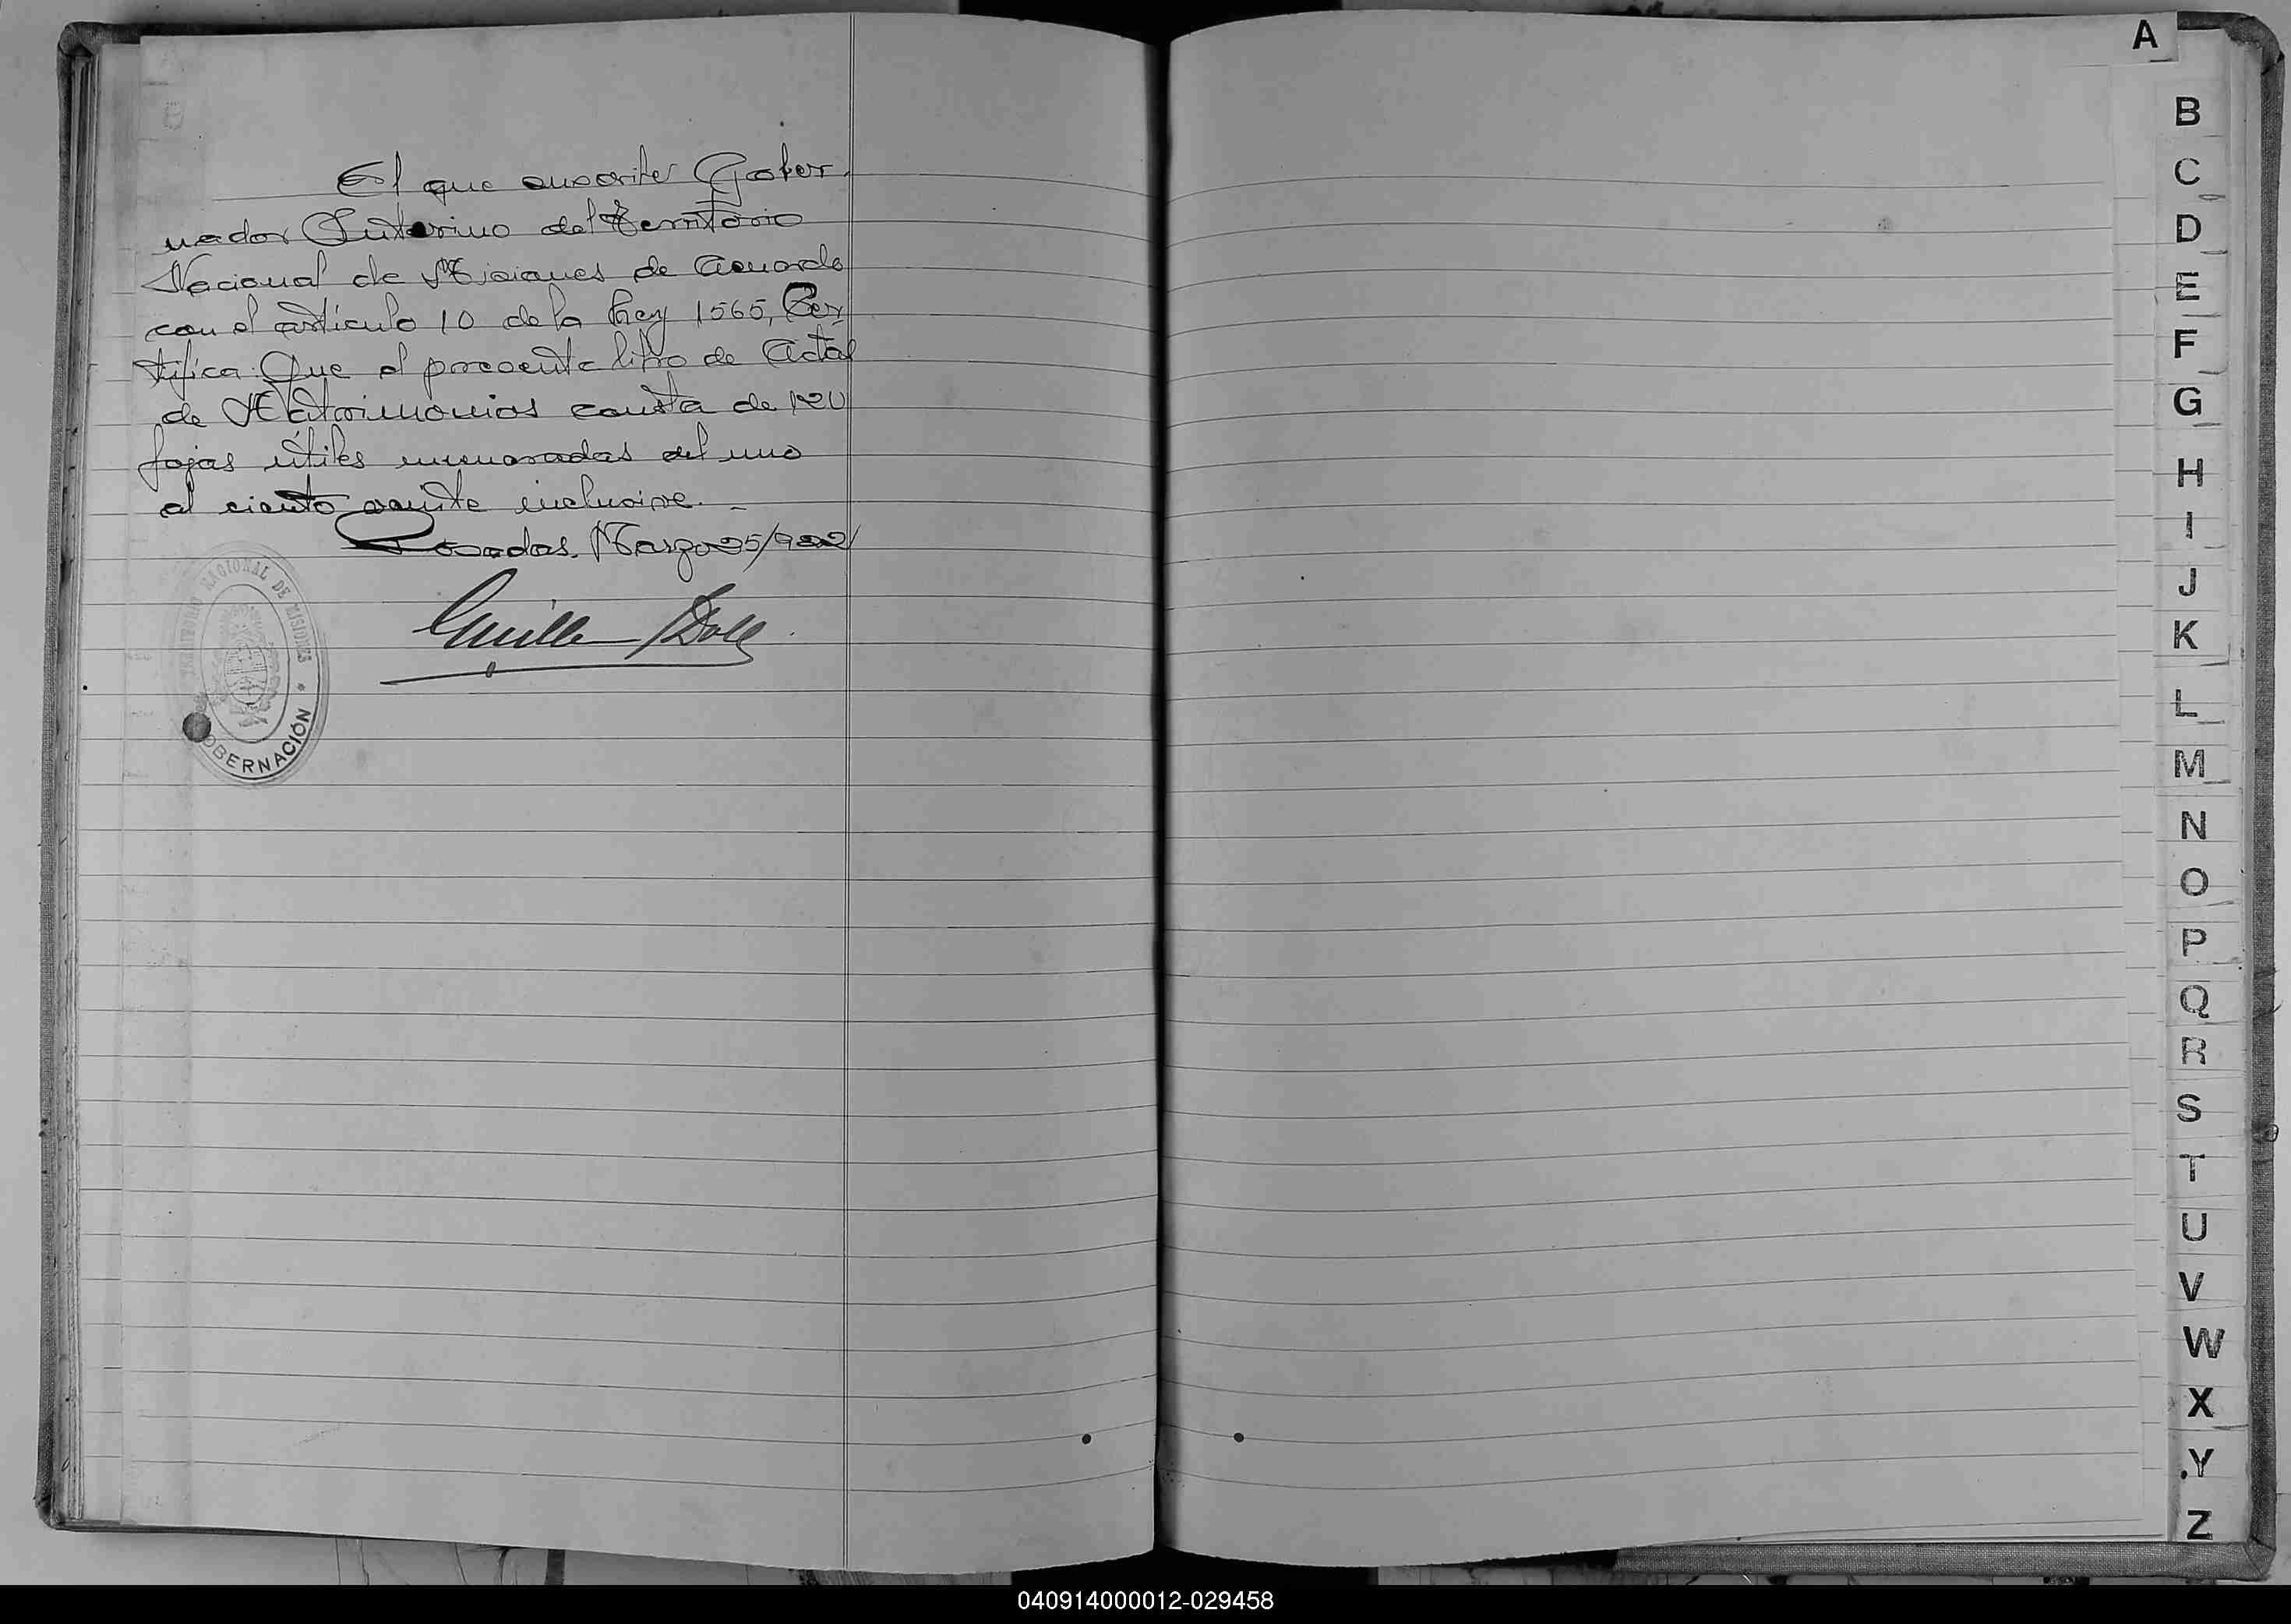 El que suscribe Gober-
nador Interino del Territorio
Nacional de Misiones de acuerdo
con el artículo 10 de la Ley 1565, Cer-
tifica: Que el presente libro de Actas
de Matrimonios consta de 120
fojas útiles enumeradas del uno
al ciento veinte inclusive.-
Posadas. Marzo 25/922
TERRITORIO NACIONAL DE MISIONES * GOBERNACIÓN
A
B
C
D
E
F
G
H
I
J
K
L
M
N
O
P
Q
R
S
T
U
V
W
X
Y
Z
040914000012-029458